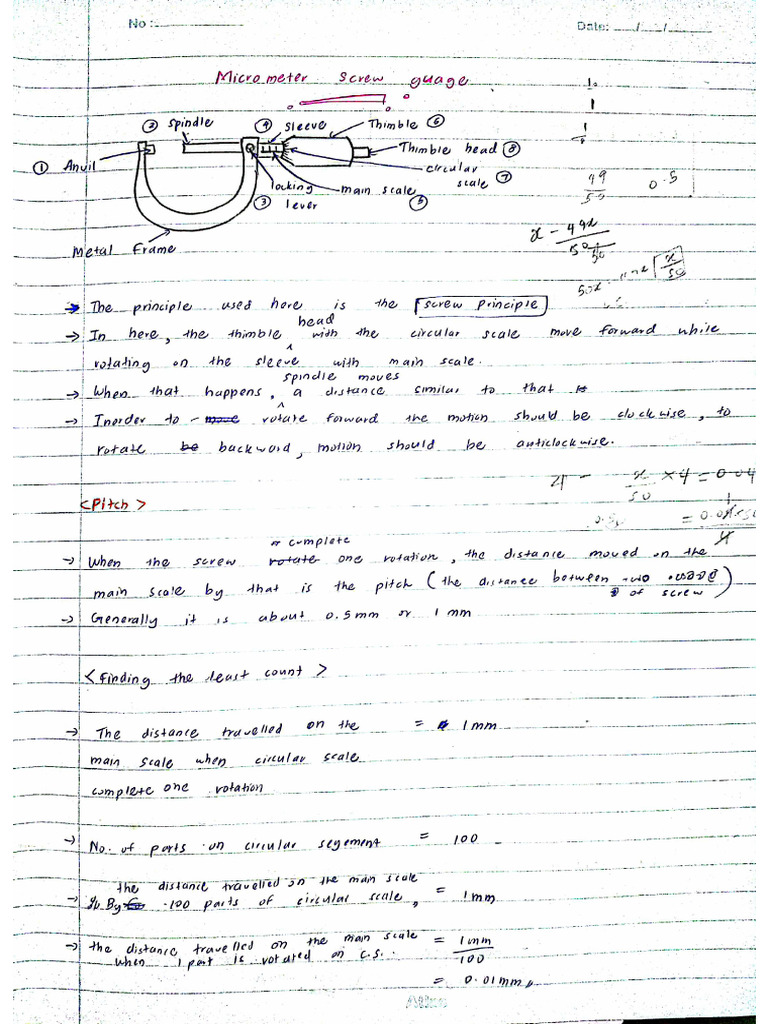 No :
Date: / /
Micrometer screw guage
① Anvil
② Spindle
④ sleeve
Thimble ⑥
Thimble head ⑧
circular scale ⑦
main scale ⑤
locking lever ③
Metal Frame
1.
1
1
4
49
50
0.5
x - 49x
50
x
50
→ The principle used here is the screw principle
head
→ In here, the thimble ^ with the circular scale move forward while
rotating on the sleeve with main scale.
spindle moves
→ When that happens, ^ a distance similar to that
→ Inorder to rotate forward the motion should be clockwise, to
rotate backword, motion should be anticlockwise.
x/50 × 4 = 0.04
<Pitch>
or complete
→ When the screw rotate one rotation, the distance moved on the
main scale by that is the pitch (the distance between
of screw)
→ Generally it is about 0.5mm or 1 mm
<Finding the least count>
→ The distance travelled on the = 1mm
main scale when circular scale
complete one rotation
→ No. of parts on circular segement = 100
the distance travelled on the main scale
→ By 100 parts of circular scale, = 1mm
→ the distance travelled on the main scale = 1mm
when 1 part is rotated on c.s. 100
= 0.01mm
Atlas